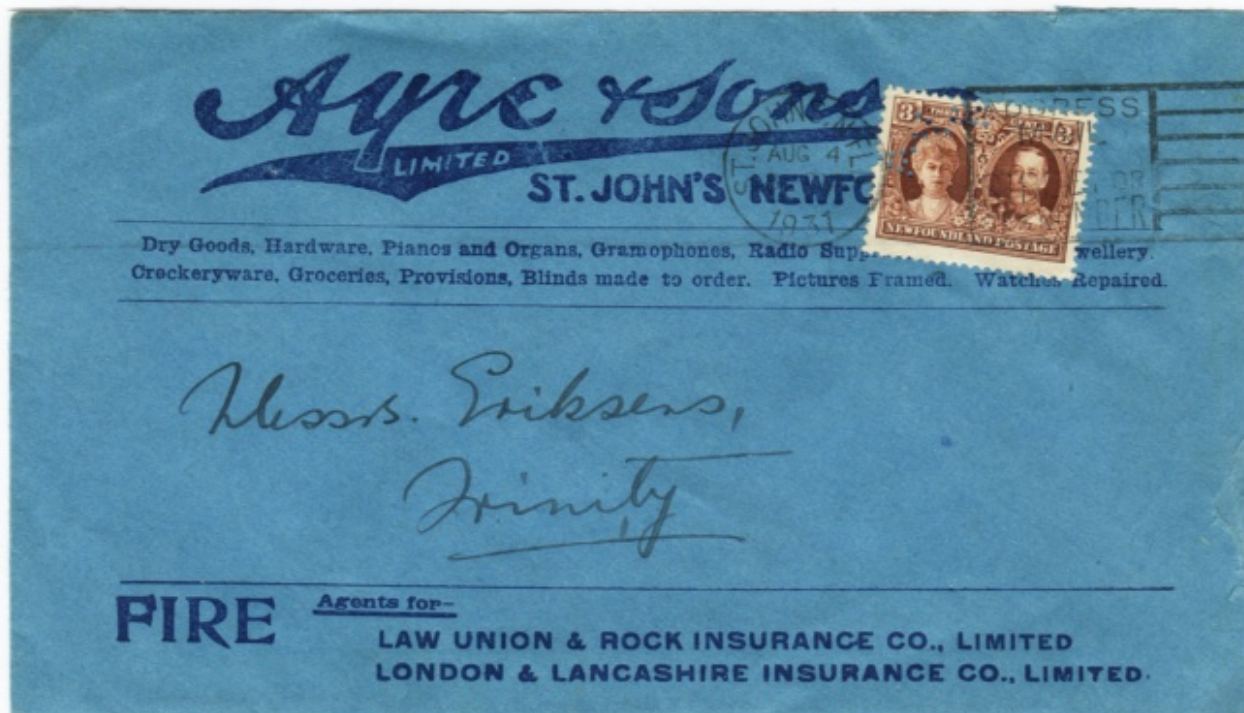 Ayre & Sons
LIMITED
ST. JOHN'S NEWFO
ST. JOHN'S NFL
AUG 4
1931
ADDRESS
MAIL
OR
3 3
NEWFOUNDLAND POSTAGE
Dry Goods, Hardware, Pianos and Organs, Gramophones, Radio Supp wellery.
Crockeryware, Groceries, Provisions, Blinds made to order. Pictures Framed. Watches Repaired.
Messrs. Eriksens,
Trinity
FIRE
Agents for-
LAW UNION & ROCK INSURANCE CO., LIMITED
LONDON & LANCASHIRE INSURANCE CO., LIMITED.